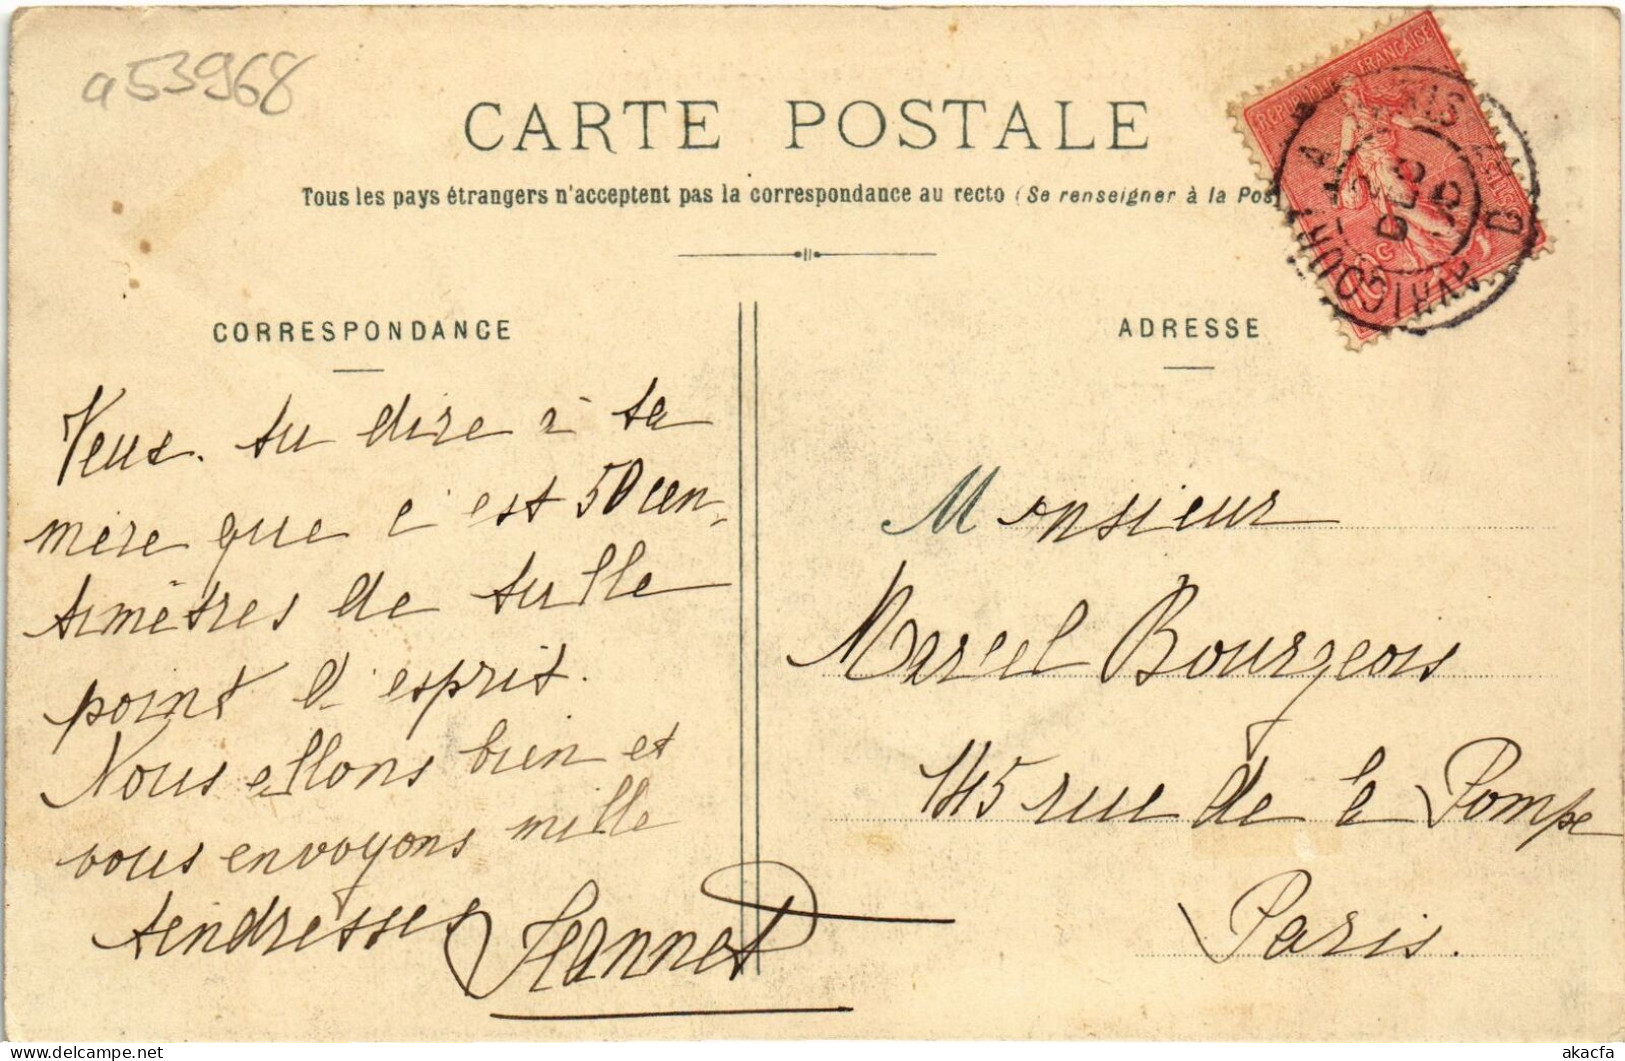 a53968
CARTE POSTALE
Tous les pays étrangers n'acceptent pas la correspondance au recto (Se renseigner à la Pos
REPUBLIQUE FRANÇAISE
POSTES
10c
AVRICOURT A PARIS
DEC
CORRESPONDANCE
ADRESSE
Veux. tu dire à ta
mère que c'est 50 cen-
timètres de tulle
point d'esprit.
Nous allons bien et
vous envoyons mille
tendresses
Jeannet
Monsieur
Marcel Bourgeois
145 rue de la Pompe
Paris.
delcampe.net
akacfa